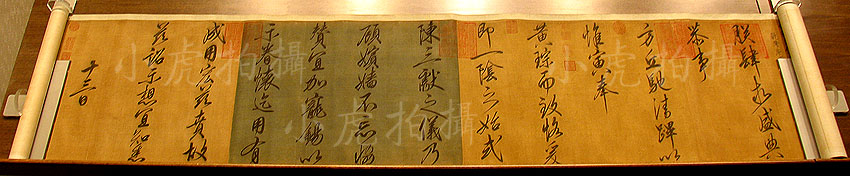 朕肆求盛典
恭事
方丘馳清蹕以
惟寅奉
黃琮而致恪爰
即一陰之始式
陳三獻之儀乃
顧嬪嬙不忘
贊宜加寵錫以
示眷懷迄用有
成用茲故
茲詔示想宜知悉
十三日
小虎拍攝
小虎拍攝
小虎拍攝